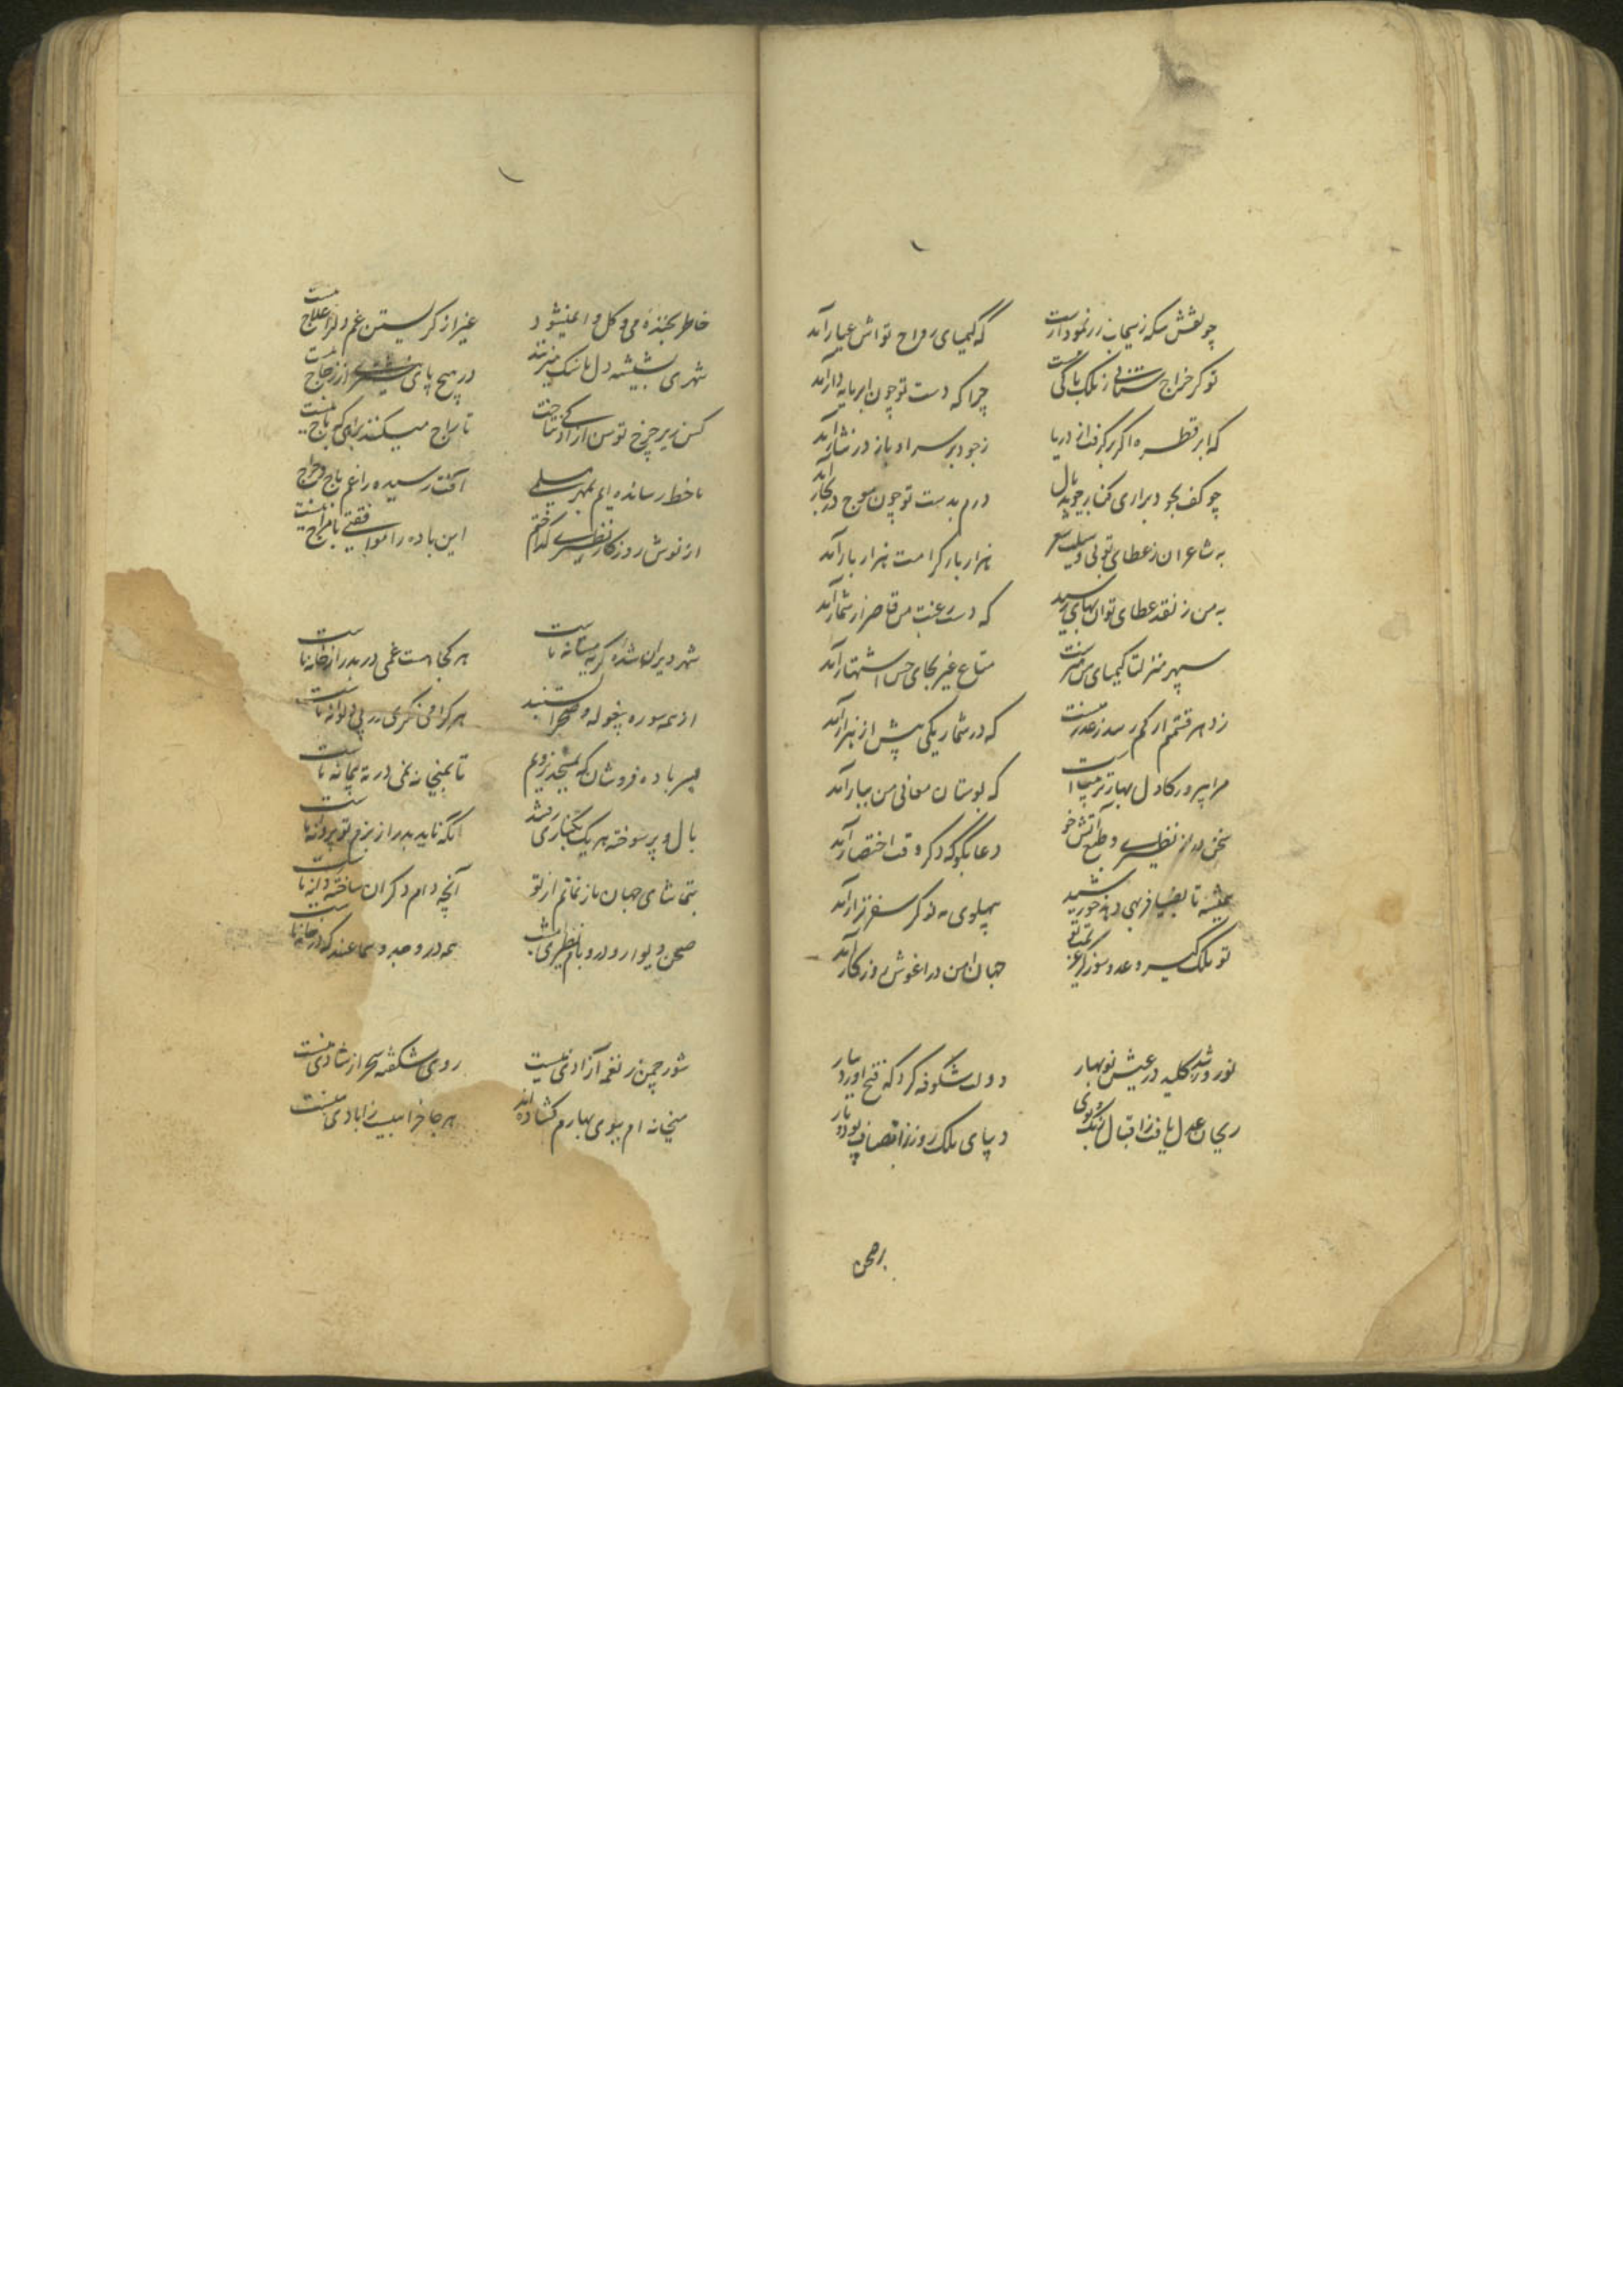 چو نقش سکه زنیجاب زر نمودارست که کیمیای رواج تو اش عیار آمد
تو کر خراج ستانی ز ملک باکی نیست چرا که دست تو چون ابر مایه دار آمد
که ابر قطره اکر برکرفت از دریا ز جود بر سر او باز در نثار آمد
چو کف بجود براری کنار جوید مال درم بدست تو چون موج در کنار آمد
به شاعران ز عطای تو بی وسیلت شعر هزار بار کرامت هزار بار آمد
به من ز نقد عطای تو ان بهای رسید که دست رغبت من قاصر از شمار آمد
سپهر منزلتا کیمیای من سخنست متاع غیر بجای خس اشتهار آمد
ز ده هر قسمتم ار کم رسد ز عدر نیست که در شمار یکی پیش از هزار آمد
مرا بپرور کاول بهار تربیت است که بوستان معانی من ببار آمد
سخن دراز نظیری و طبع آتش خو دعا بکو که دکر وقت اختصار آمد
همیشه تا بضیا فربهی دهد خورشید بپهلوی مه نو کر سفر نزار آمد
تو ملک کیر و عدو سوز کز عزیمت تو جهان امن در اغوش روزکار آمد
نوروز شد کلید در عیش نوبهار دولت شکوفه کرد که فتح اورد ببار
ریحان عدل یافت ز اقبال رنک و بوی دیبای ملک روز ز انصاف پود و تار
برصحن
خاطر بخنده می و کل وا نمیشود غیر از کریستن غم دل را علاج نیست
شهری بشیشه دل ما سنک میزنند در هیچ پای از زجاج نیست
کس زیر چرخ توسن ازاد کی نتاخت تاراج میکنند براهی که باج نیست
ما خط رسانده ایم بمهر مسلمی آفت رسیده را غم باج و خراج نیست
از نوش روزکار نظیری کدام ختم این باده را موافقتی با مزاج نیست
شهر ویران شده کریه مستانه ماست هر کجا هست غمی در بدر از خانه ماست
از همه سو ره بیغوله و صحرا بستند هر کرا می نکری در پی دیوانه ماست
بسر باده فروشان که نسنجیده رویم تا بمیخانه نمی در ته پیمانه ماست
بال و پر سوخته هر یک بکناری رفتند انکه ناید بدر از بزم تو پروانه ماست
بتماشای جهان باز نمانم از تو آنچه دام دکران ساخته دانه ماست
صحن و دیوار و در و بام نظیری مست همه در وجد و سماعند که در خانه ماست
شور چمن ز نغمه آزادی نیست روی شکفته سحر از شادی نیست
میخانه ام ببوی بهارم کشاده اند هر جا خرابیست ز ابادی نیست